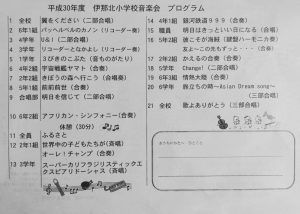 平成30年度 伊那北小学校音楽会 プログラム
1 全校 翼をください(二部合唱)
2 6年1組 パッヘルベルのカノン(リコーダー奏)
3 4学年 U&I(二部合唱)
4 3学年 リコーダーとなかよし(リコーダー奏)
5 1学年 3びきのこぶた(音のものがたり)
6 4年2組 宇宙戦艦ヤマト(合奏)
7 2年2組 きぼうの森へ行こう(斉唱)
8 5年1組 前前前世(合奏)
9 合唱部 明日を信じて(二部合唱)
10 6年2組 アフリカン・シンフォニー(合奏)
休憩(30分)
11 全員 ふるさと
12 2年1組 世界中の子どもたちが(斉唱)
オーレ!チャンプ(合奏)
13 3学年 スーパーカリフラジリスティックエ
クスピアリドーシャス(斉唱)
14 4年1組 銀河鉄道999(合奏)
15 職員 明日はきっといい日になる(合唱)
16 5年2組 誰こそが海賊(鍵盤ハーモニカ奏)
友よ~この先もずっと・・・(合奏)
17 2年2組 かえるの合奏(合奏)
18 5学年 Change!(二部合唱)
19 6年3組 情熱大陸(合奏)
20 6学年 旅立ちの時~Asian Dream song~
(三部合唱)
21 全校 歌よありがとう(三部合唱)